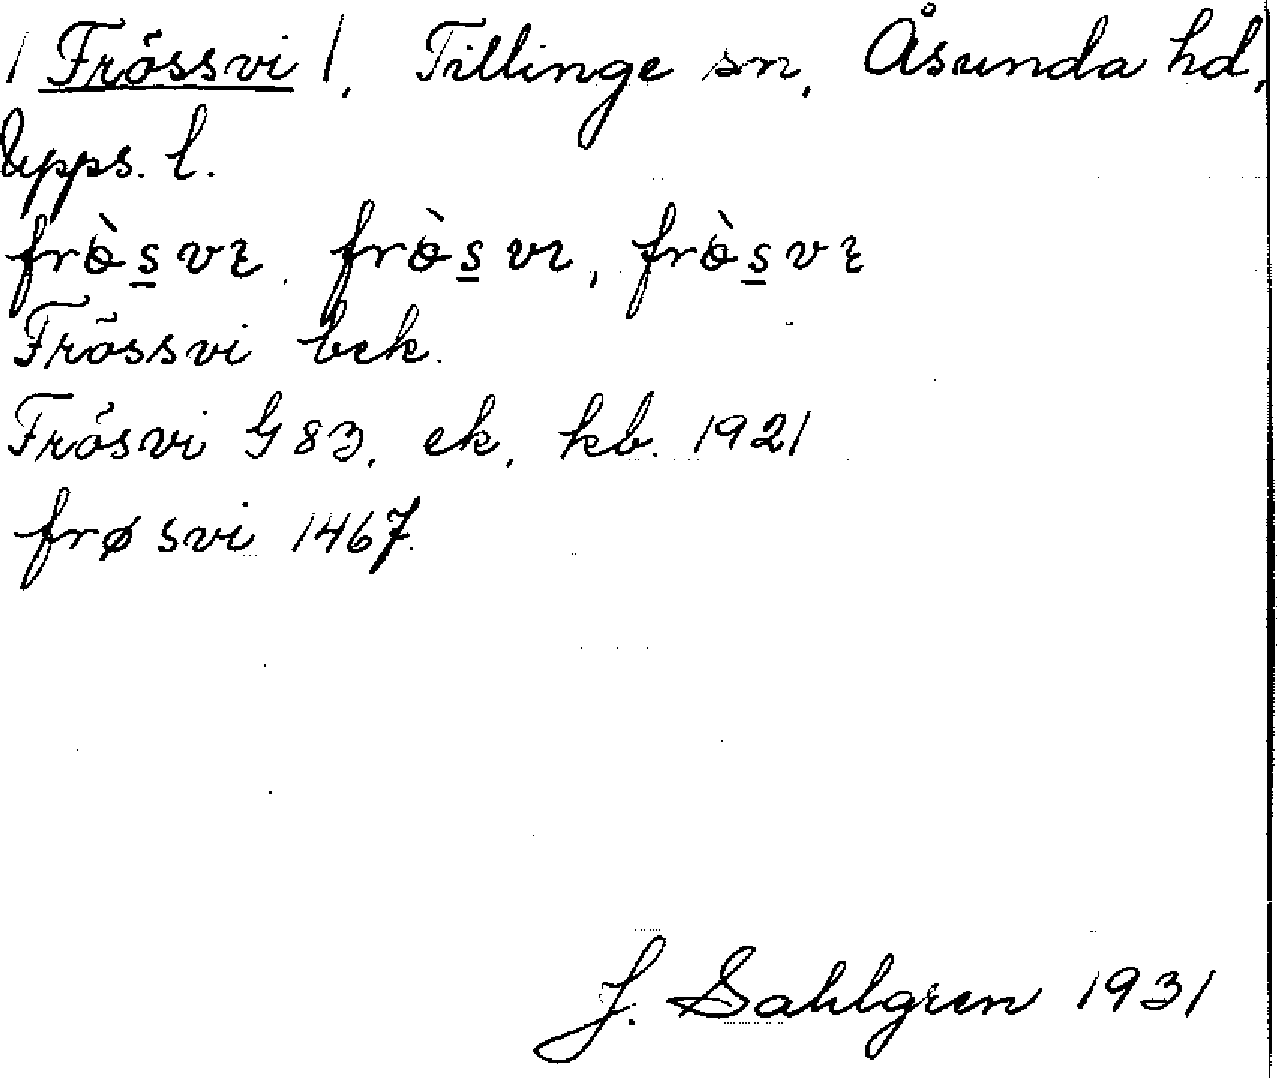 / Frössvi /, Tillinge sn, Åsunda hd,
Upps. l.
frø̀s̲vɩ. frø̀s̲vı, frø̀s̲vɩ
Frössvi bek.
Frösvi G 83, ek, kb. 1921
frøsvi 1467.
J. Sahlgren 1931